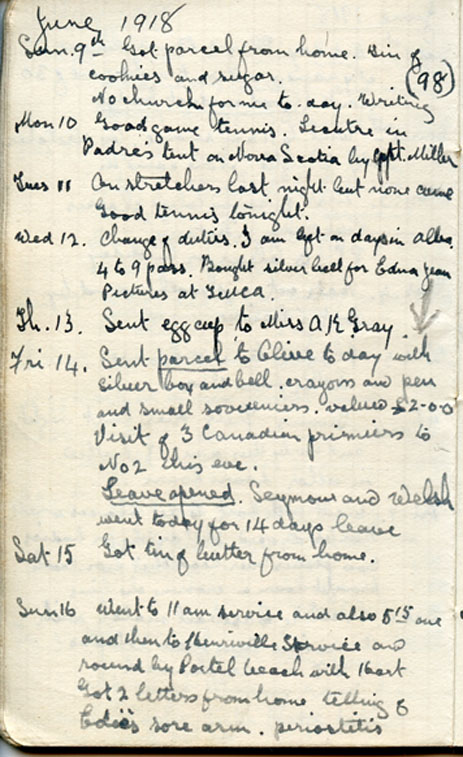 June 1918
Sun. 9th Got parcel from home. Bin of
cookies and sugar.
(98)
No church for me to-day. Writing
Mon 10 Good game tennis. Lecutre in
Padre's tent on Nova Scotia by Cpt. Miller
Tues 11 On stretchers last night but none came
Good tennis tonight.
Wed 12. Change of duties. I am left on days in
4 to 9 pass. Bought silver bell for Edna Jean
Pictures at YMCA.
Th. 13. Sent egg cup to Miss A K Gray
Fri 14. Sent parcel to Olive to day with
silver box and bell. crayons and pen
and small soveniers. valued £2-0-0
Visit of 3 Canadian primiers to
No 2 this eve.
Leave opened. Seymour and Welsh
went today for 14 days leave
Sat 15 Got tin of butter from home.
Sun 16 Went to 11 am service and also 5 15 one
and then to Henriville Service and
round by Portel beach with Hart
Got 2 letters from home telling of
Edie's sore arm. periostetis